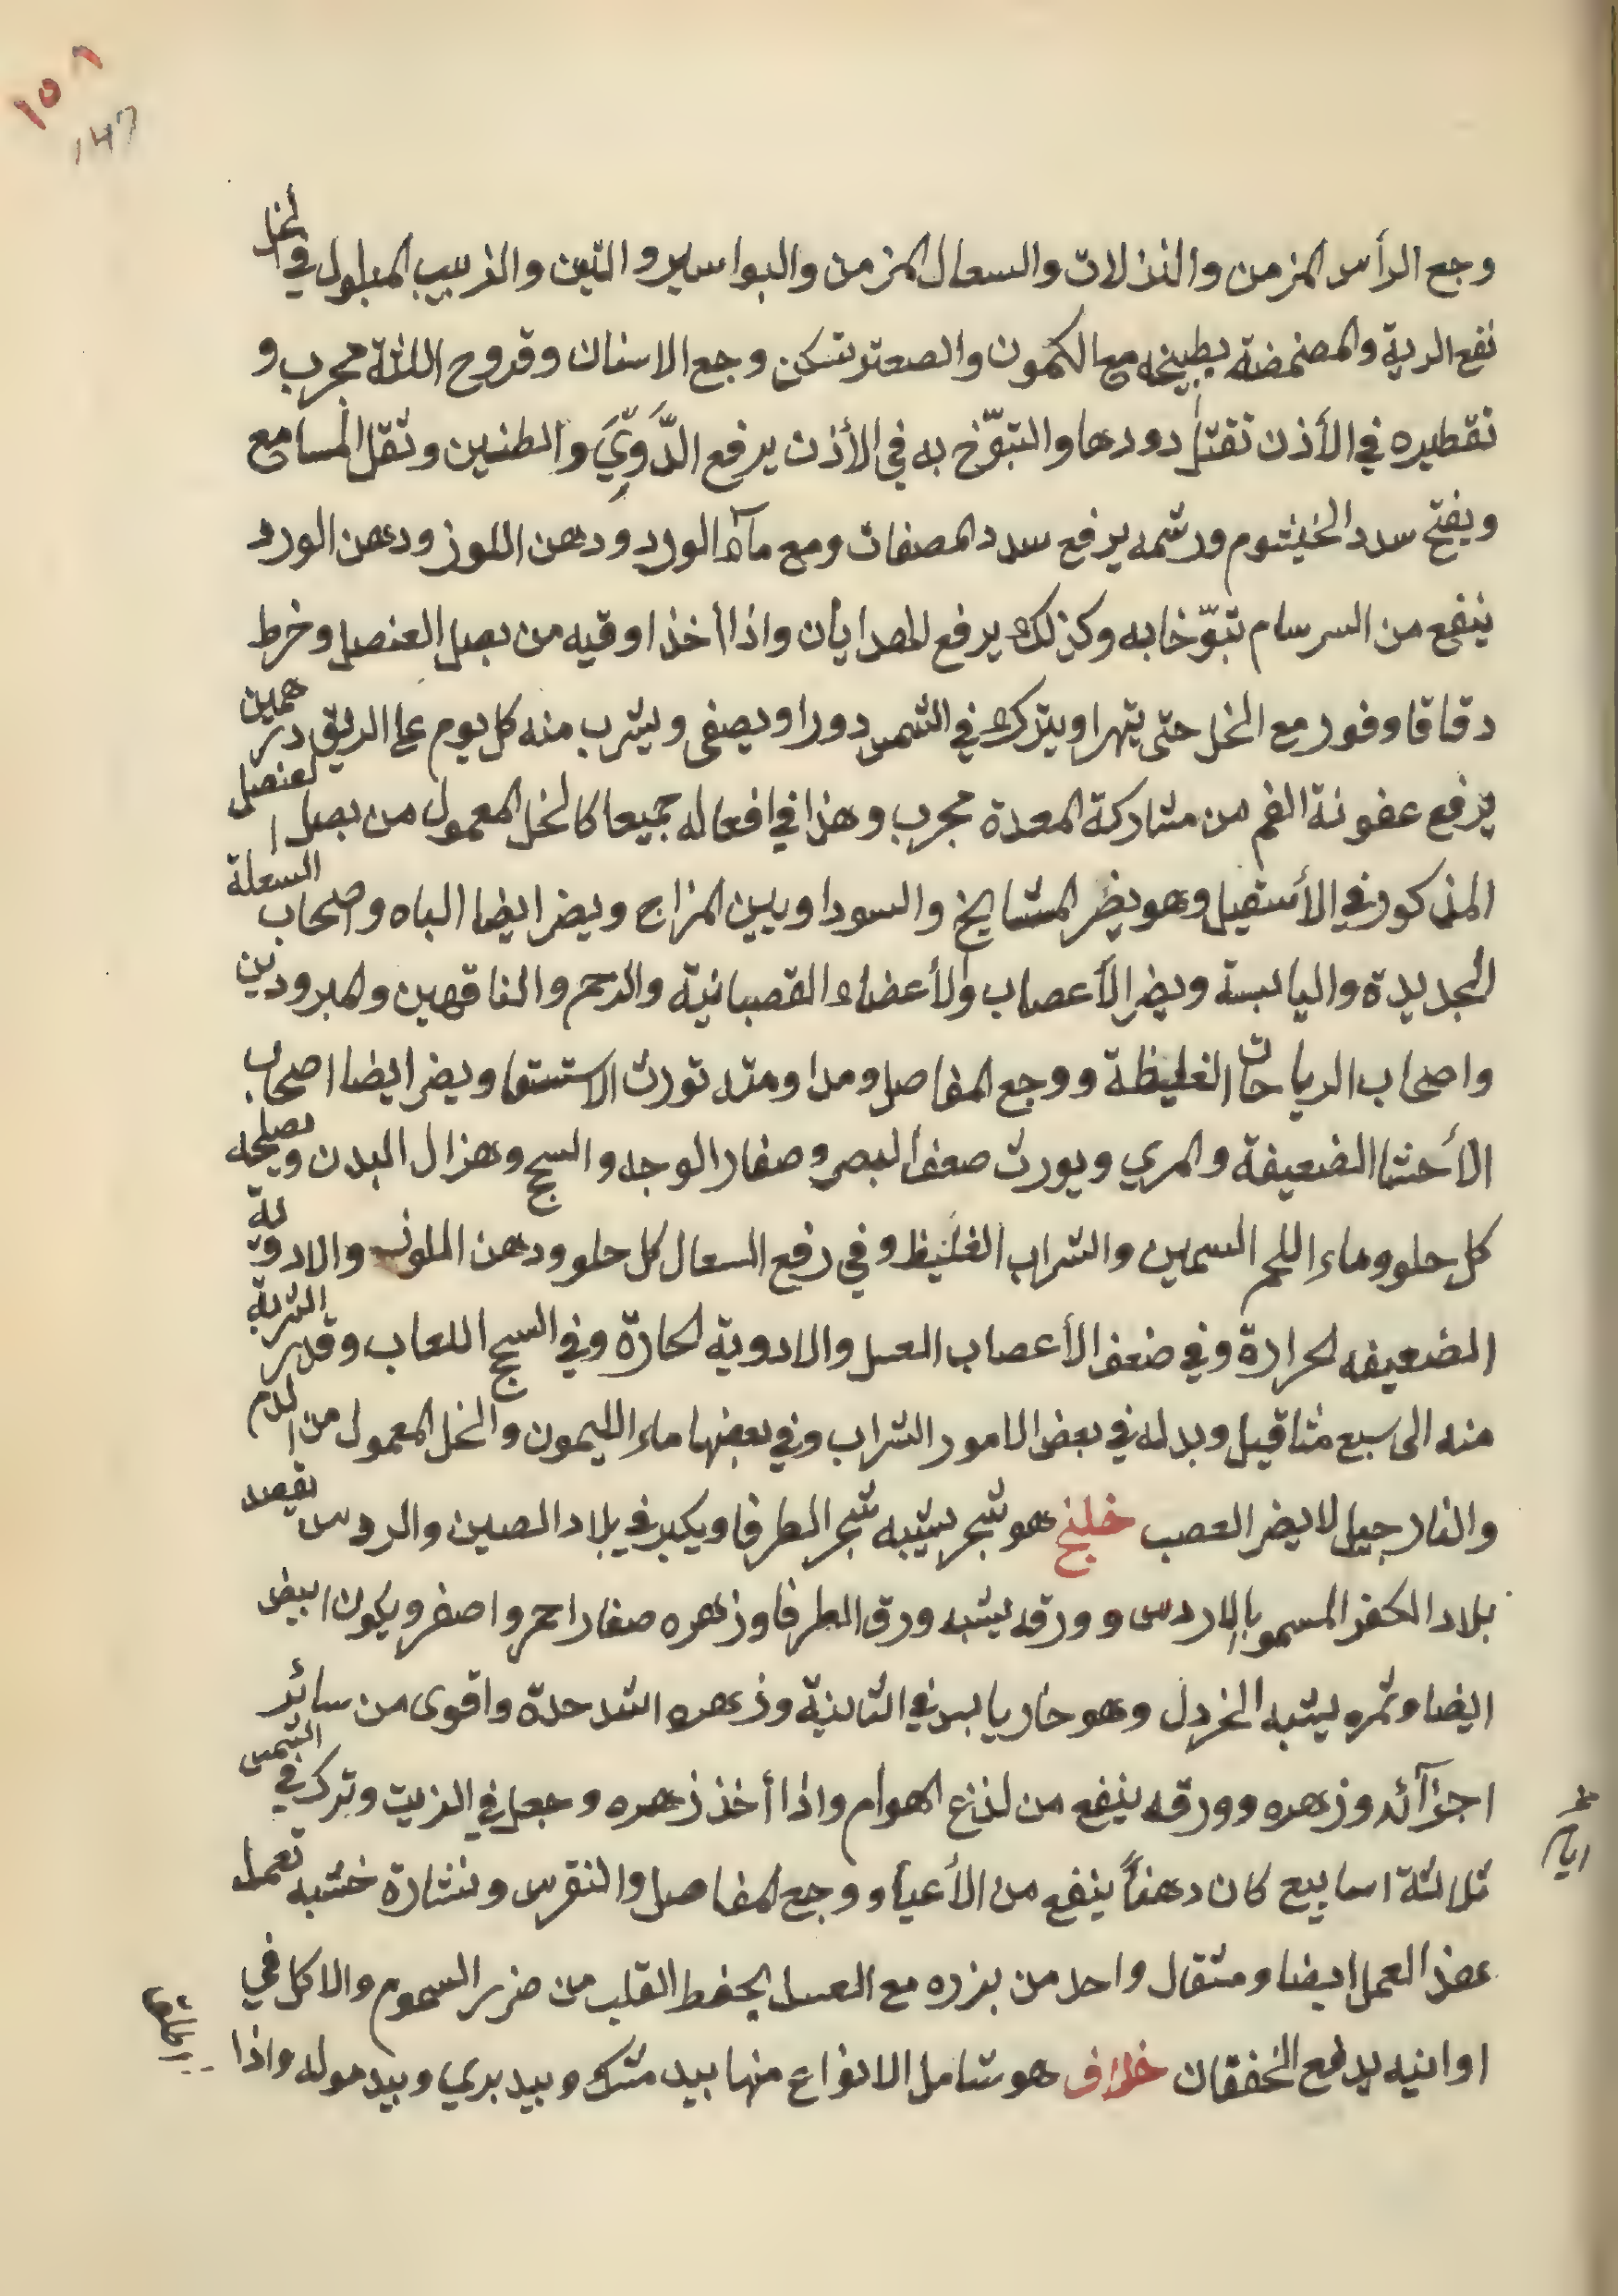 ١٥٦
١٤٦
وجع الرأس المزمن والنزلات والسعال المزمن والبواسير والتين والزبيب المبلول في الخل
نفع الرية والمضمضة بطبيخه مع الكمون والصعتر تسكن وجع الاسنان وقروح اللثة مجرب و
تقطيره في الأذن تقتل دودها والتبوّخ به في الأذن يرفع الدَّوِيَّ والطنين وثقل المسامع
ويفتح سدد الخيشوم وشمه يرفع سدد المصفات ومع مآء الورد ودهن اللوز ودهن الورد
ينفع من السرسام تبوّخا به وكذلك يرفع الهدايان واذا أخذ اوقيه من بصل العنصل وخرط
دقاقا وفور مع الخل حتى يتهرا ويترك في الشمس دورا ويصفى ويشرب منه كل يوم على الريق درهمين
يرفع عفونة الفم من مشاركة المعدة مجرب وهذا في افعاله جميعا كالخل المعمول من بصل العنصل
المذكور في الأسقيل وهو يظر المشايخ والسوداويين المزاج ويضر ايضا الباه واصحاب السعلة
الجديدة واليابسة ويضر الأعصاب والأعضاء القصبانية والرحم والناقهين والمبرودين
واصحاب الرياحات الغليظة ووجع المفاصل ومداومته تورث الاستسقا ويضر ايضا اصحاب
الأحشا الضعيفة والمري ويورث ضعف البصر وصفار الوجه والسحج وهزال البدن ويصلحه
كل حلو وماء اللحم السمين والشراب الغليظ وفي رفع السعال كل حلو ودهن اللوز والادوية
الضعيفه الحرارة وفي ضعف الأعصاب العسل والادوية الحارة وفي السحج اللعاب وقدر الشربة
منه الى سبع مثاقيل وبدله في بعض الامور الشراب وفي بعضها ماء الليمون والخل المعمول من
والنارجيل لا يضر العصب خلنج هو شجر يشبه شجر الطرفا ويكبر في بلاد الصين والروس نقصد
بلاد الكفر المسمو بالاردس وورقه يشبه ورق الطرفا وزهره صفار احمر واصفر ويكون ابيض
ايضا وثمره يشبه الخردل وهو حار يابس في الثانية وزهره اشد حدة واقوى من سائر
اجزآئه وزهره وورقه ينفع من لذع الهوام واذا أخذ زهره وجعل في الزيت وترك في الشمس
ثلاثة اسابيع كان دهناً ينفع من الأعياء ووجع المفاصل والنقرس ونشارة خشبه تعمل
هذا العمل ايضا ومثقال واحد من بزره مع العسل يحفظ القلب من ضرر السموم والاكل في
اوانيه يدفع الخفقان خلاف هو شامل الانواع منها بيد مشك وبيد بري وبيد موله واذا